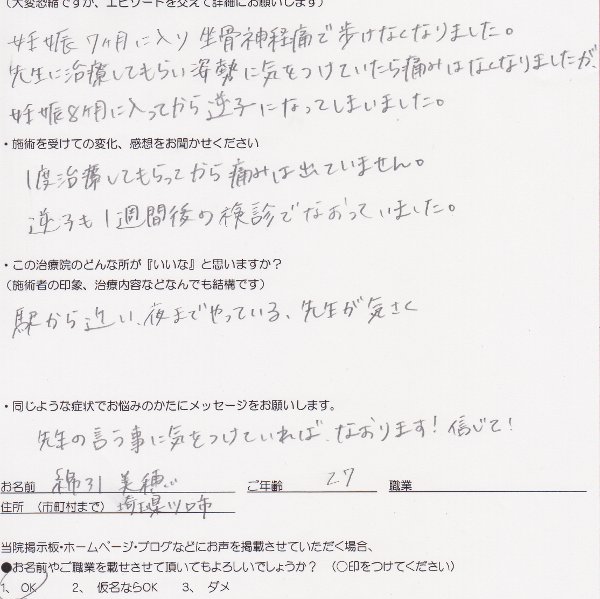 (大変恐縮ですが、エピソードを交えて詳細にお願いします)
妊娠7ヶ月に入り坐骨神経痛で歩けなくなりました。
先生に治療してもらい姿勢に気をつけていたら痛みはなくなりましたが、
妊娠8ヶ月に入ってから逆子になってしまいました。
・施術を受けての変化、感想をお聞かせください
1度治療してもらってから痛みは出ていません。
逆子も1週間後の検診でなおっていました。
・この治療院のどんな所が『いいな』と思いますか？
(施術者の印象、治療内容などなんでも結構です)
駅から近い、夜までやっている、先生が気さく
・同じような症状でお悩みのかたにメッセージをお願いします。
先生の言う事に気をつけていれば、なおります！信じて！
お名前 綿引 美穂 ご年齢 27 職業
住所 (市町村まで) 埼玉県川口市
当院掲示板・ホームページ・ブログなどにお声を掲載させていただく場合、
●お名前やご職業を載せさせて頂いてもよろしいでしょうか？ (○印をつけてください)
1、OK 2、仮名ならOK 3、ダメ